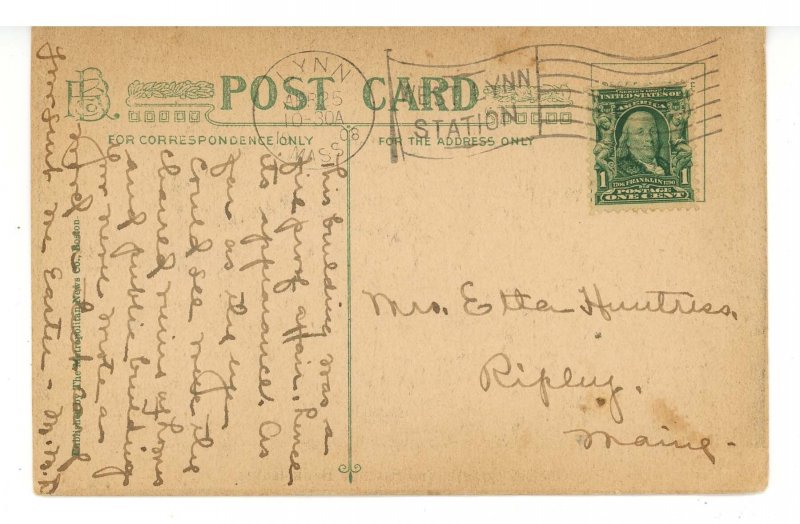 POST CARD
FOR CORRESPONDENCE ONLY
FOR THE ADDRESS ONLY
LYNN
APR 25
10-30A
8
MASS
WEST LYNN
STATION
SERIES 1902
UNITED STATES OF
AMERICA
1706 FRANKLIN 1790
POSTAGE
1 ONE CENT 1
This building was a
fire proof affair, hence
its appearance. As
far as the eye
could see were the
charred ruins of homes
and public buildings
Published by The Metropolitan News Co., Boston
Mrs. Etta Huntress.
Ripley.
Maine.